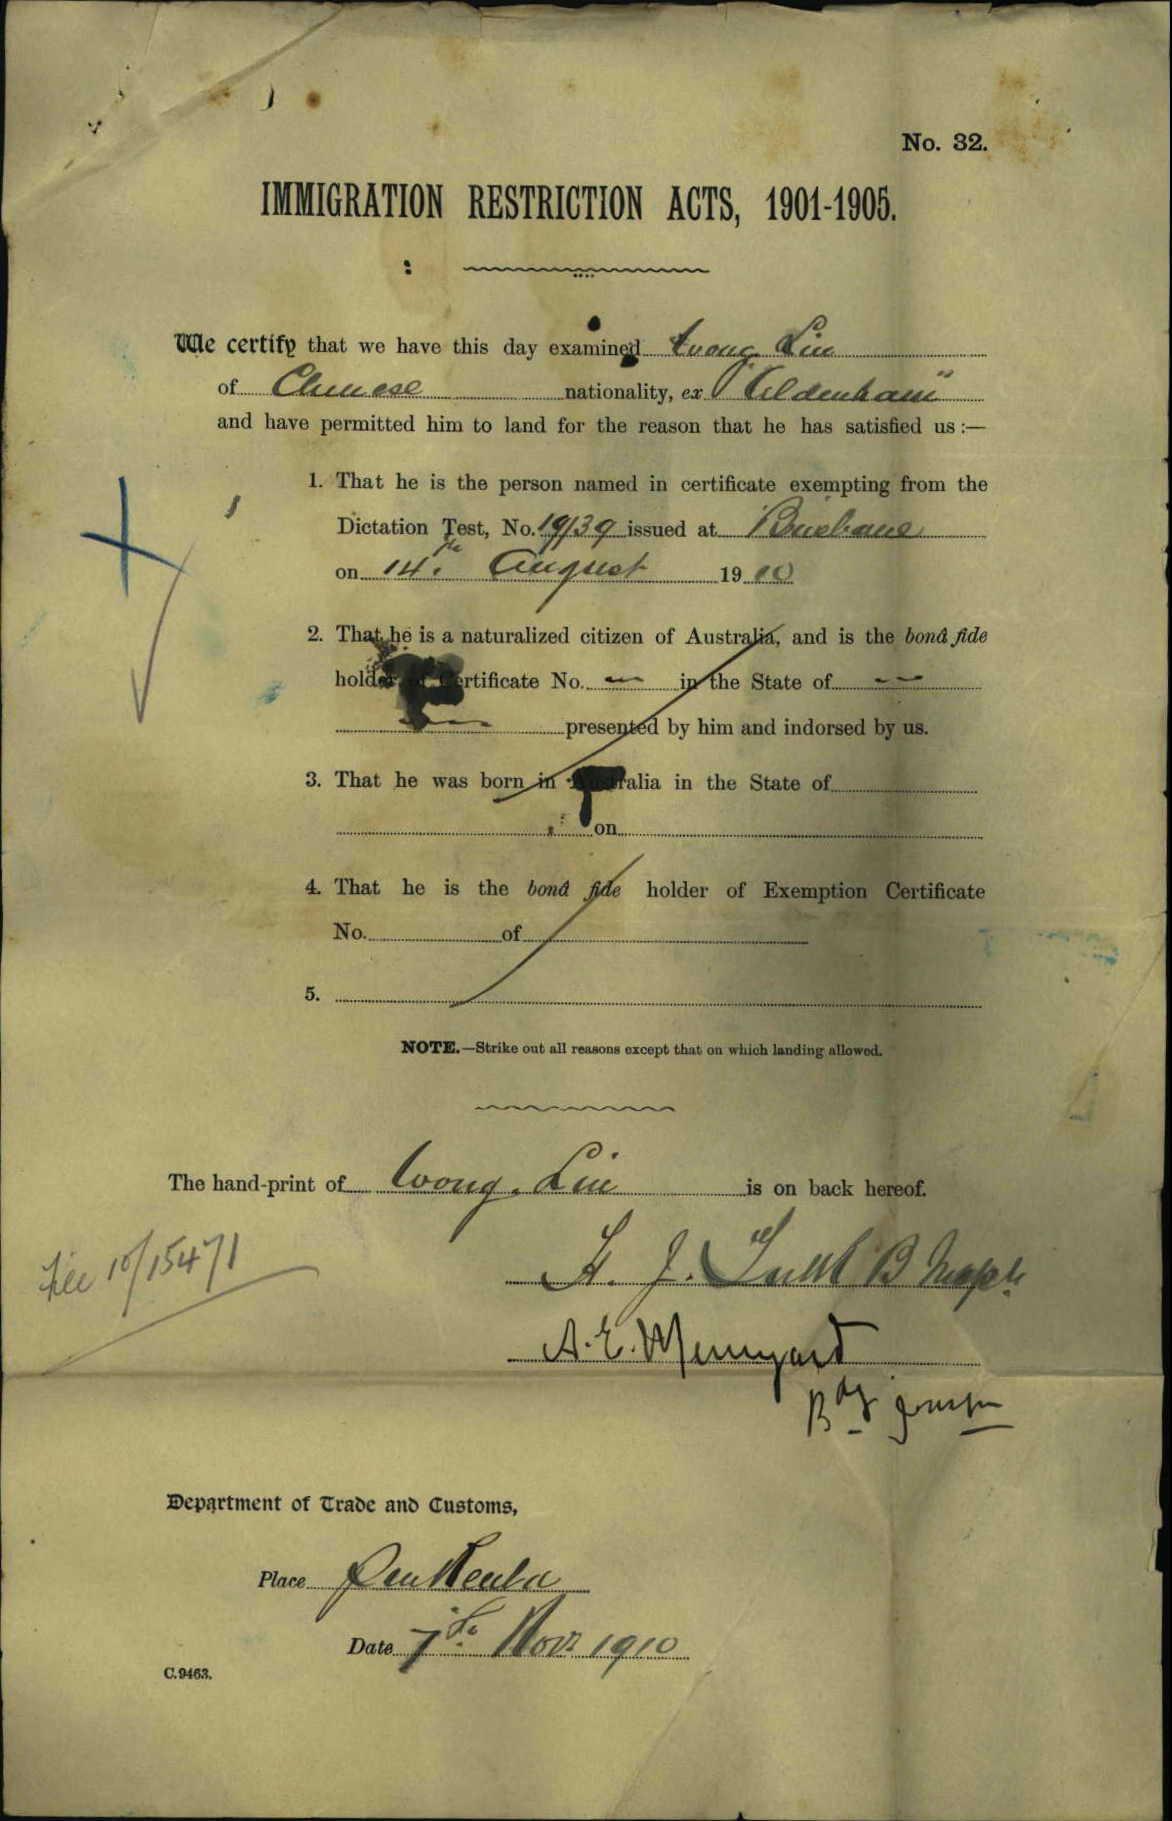 No. 32.
IMMIGRATION RESTRICTION ACTS, 1901-1905.
We certify that we have this day examined Wong Lin
of Chinese nationality, ex "Aldenham"
and have permitted him to land for the reason that he has satisfied us :—
1. That he is the person named in certificate exempting from the
Dictation Test, No. 19/39 issued at Brisbane
on 14th August 1910
2. That he is a naturalized citizen of Australia, and is the bonâ fide
holder of Certificate No. — in the State of —
— presented by him and indorsed by us.
3. That he was born in Australia in the State of
on
4. That he is the bonâ fide holder of Exemption Certificate
No. of
5.
NOTE.—Strike out all reasons except that on which landing allowed.
The hand-print of Wong Lin is on back hereof.
File 10/15471
J.
A. E.
Department of Trade and Customs,
Place
Date 7th Novr 1910
C.9463.